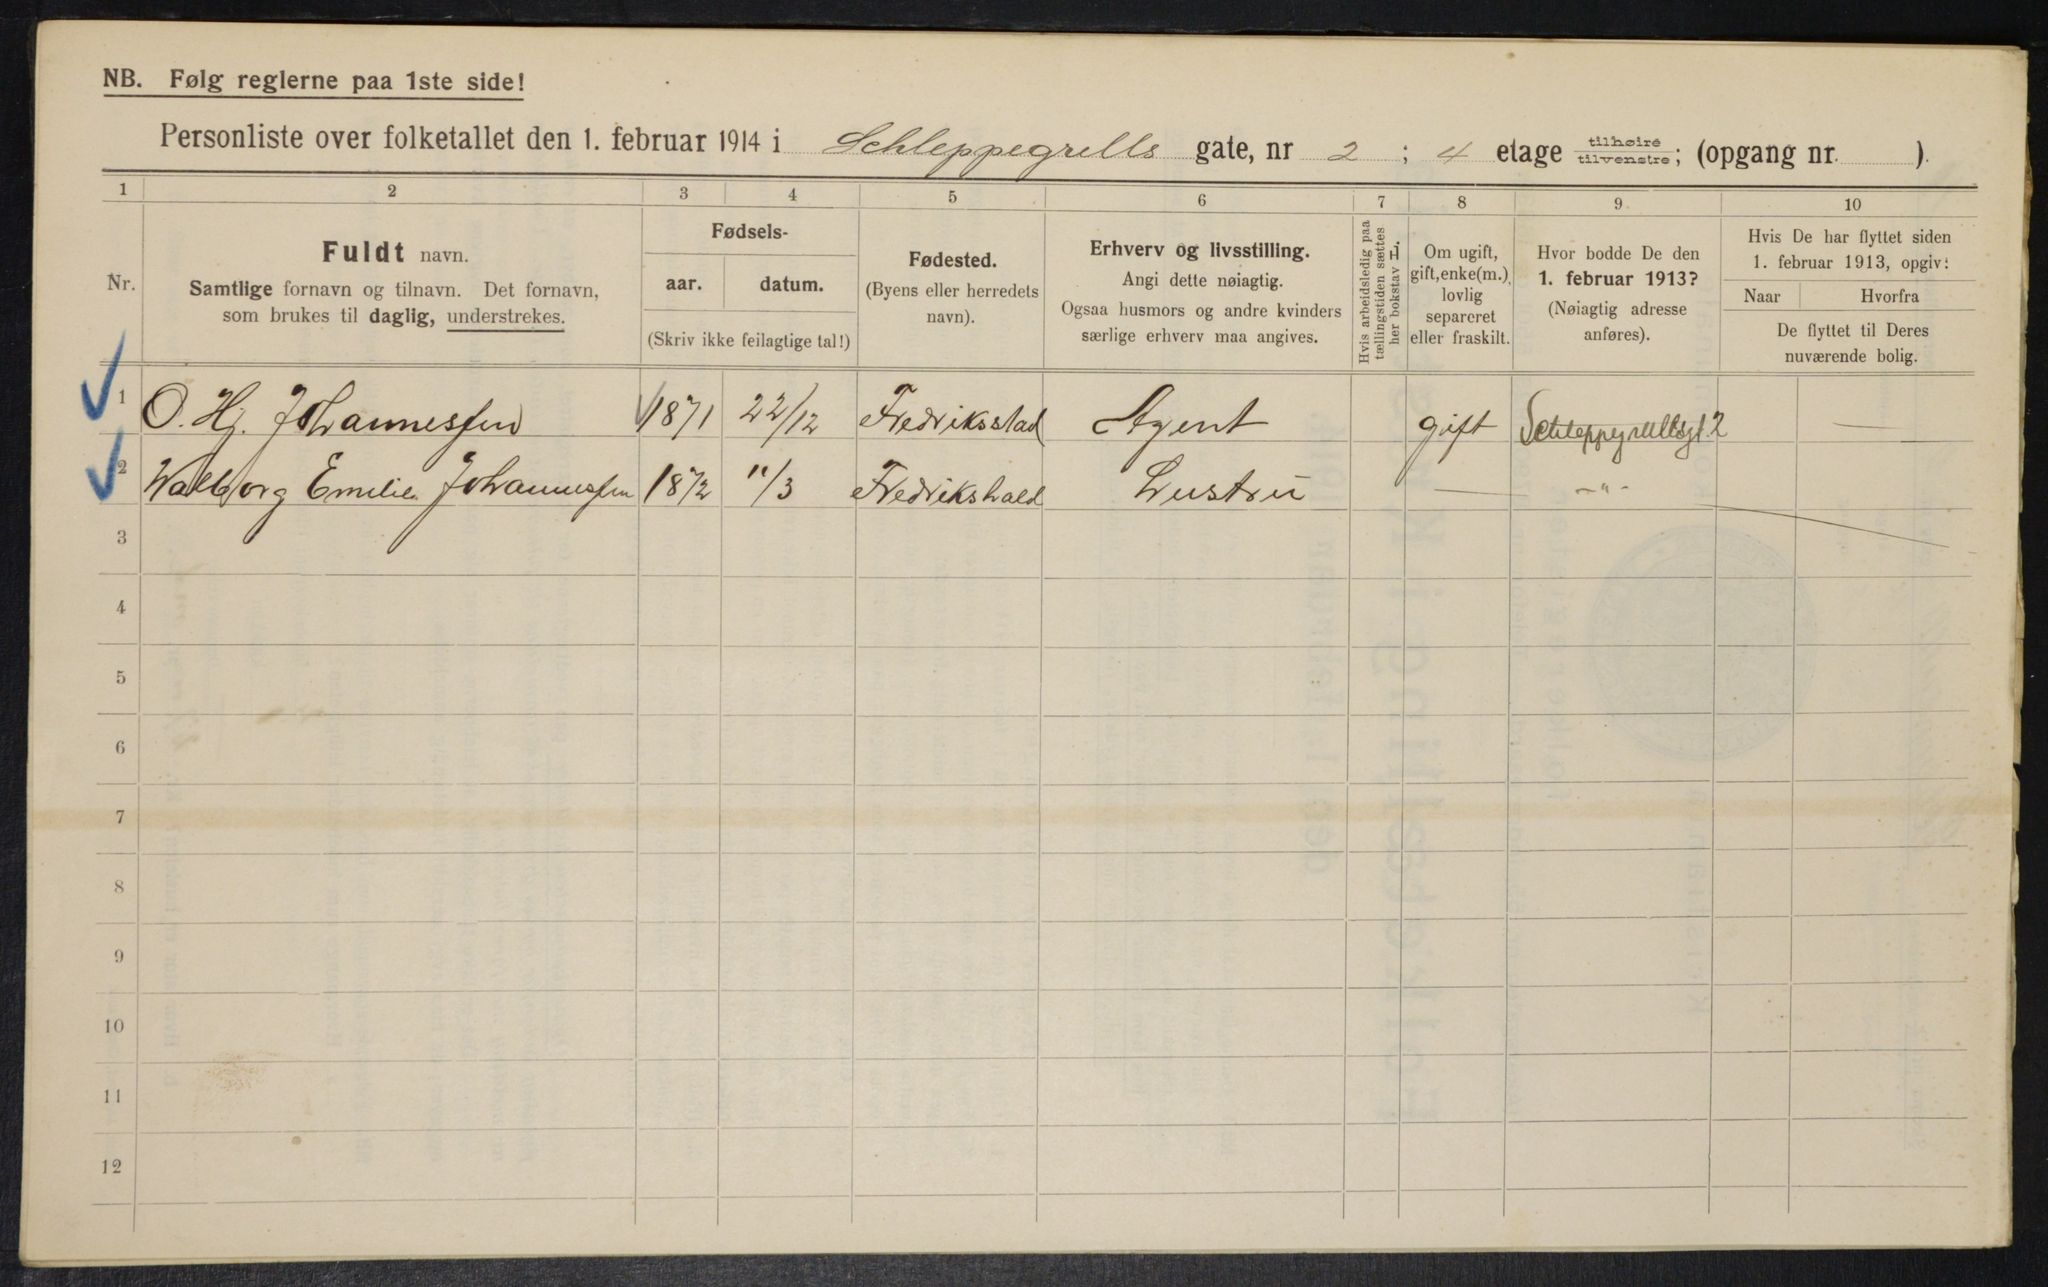 NB. Følg reglerne paa 1ste side!
Personliste over folketallet den 1. februar 1914 i Schleppegrells gate, nr 2 ; 4 etage tilhøire tilvenstre; (opgang nr. ).
1 2 3 4 5 6 7 8 9 10
Nr.
Fuldt navn.
Samtlige fornavn og tilnavn. Det fornavn,
som brukes til daglig, understrekes.
Fødsels-
aar. datum.
(Skriv ikke feilagtige tal!)
Fødested.
(Byens eller herredets
navn).
Erhverv og livsstilling.
Angi dette nøiagtig.
Ogsaa husmors og andre kvinders
særlige erhverv maa angives.
Hvis arbeidsledig paa
tællingstiden sættes
her bokstav L.
Om ugift,
gift, enke(m.),
lovlig
separeret
eller fraskilt.
Hvor bodde De den
1. februar 1913?
(Nøiagtig adresse
anføres).
Hvis De har flyttet siden
1. februar 1913, opgiv:
Naar Hvorfra
De flyttet til Deres
nuværende bolig.
1 O. Hj. Johannessen 1871 22/12 Fredriksstad Agent gift Schleppegrellsgt 2 —
2 Walborg Emilie Johannessen 1872 11/3 Fredrikshald Hustru — -"-
3
4
5
6
7
8
9
10
11
12